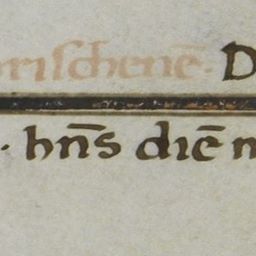 riſchenē· D
· hn̄s diē n